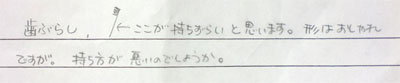 歯ぶらし、←ここが持ちずらいと思います。形はおしゃれ
ですが。持ち方が悪いのでしょうか。